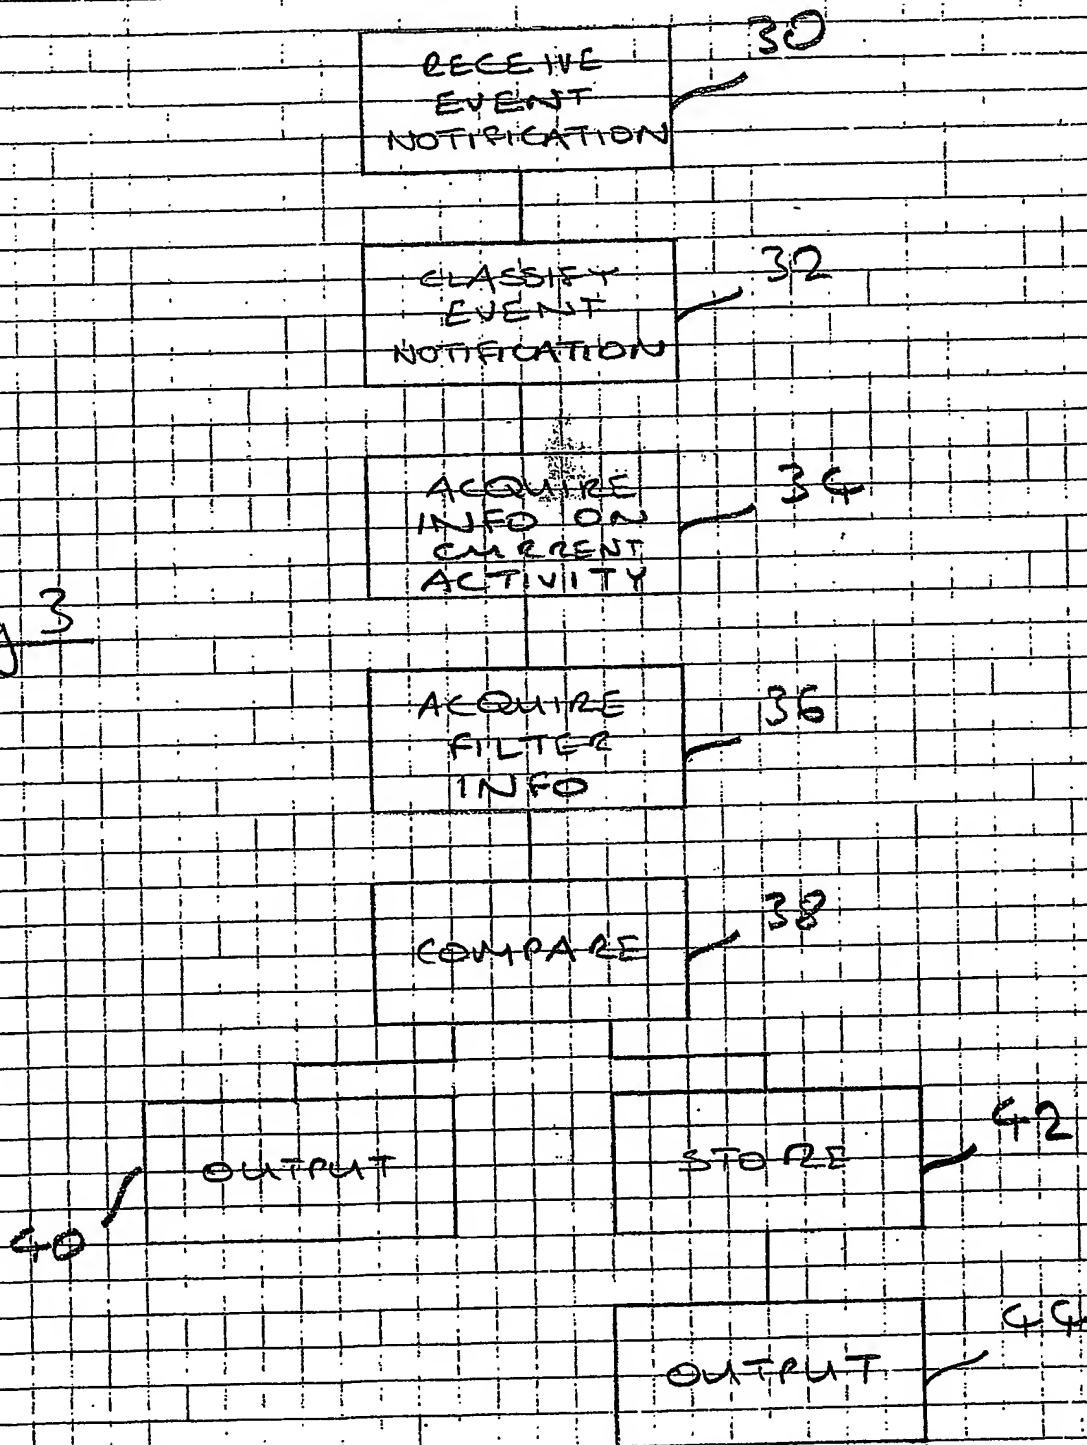 RECEIVE
EVENT
NOTIFICATION
30
CLASSIFY
EVENT
NOTIFICATION
32
ACQUIRE
INFO ON
CURRENT
ACTIVITY
34
g 3
ACQUIRE
FILTER
INFO
36
COMPARE
38
OUTPUT
40
STORE
42
OUTPUT
44